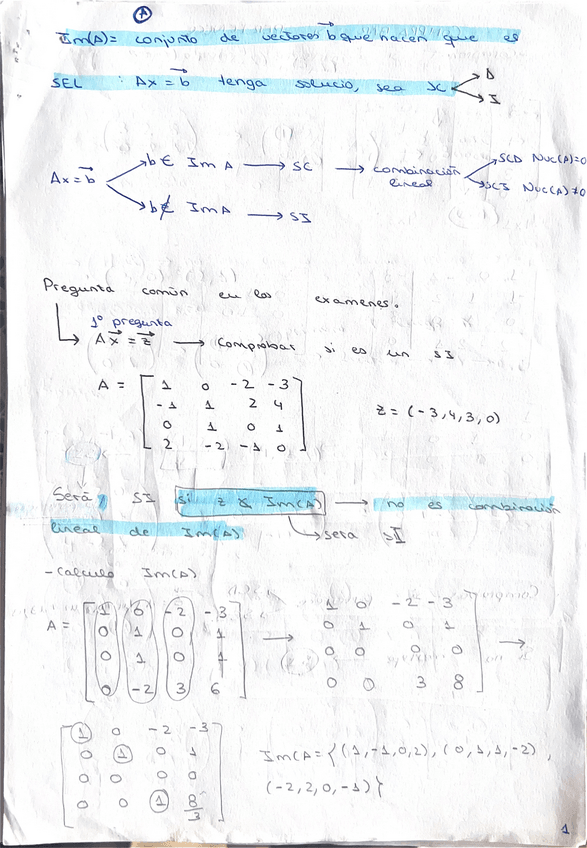 A
Im(A)= conjunto de vectores b que hacen que el
SEL : Ax = b tenga solucio, sea SC D
I
Ax = b
b ∈ Im A → SC → combinación lineal
SCD Nuc(A)=0
SCI Nuc(A)≠0
b ∉ Im A → SI
Pregunta común en los examenes.
1º pregunta
Ax = z → Comprobar si es un SI
A =
1 0 -2 -3
-1 1 2 4
0 1 0 1
2 -2 -1 0
z = (-3,4,3,0)
Será SI si z ∉ Im(A) → no es combinación
lineal de Im(A) → sera SI
- Calculo Im(A)
A =
1 0 -2 -3
0 1 0 1
0 1 0 1
0 -2 3 6
→
1 0 -2 -3
0 1 0 1
0 0 0 0
0 0 3 8
→
1 0 -2 -3
0 1 0 1
0 0 0 0
0 0 1 8/3
Im(A = {(1,-1,0,2), (0,1,1,-2),
(-2,2,0,-1)}
1